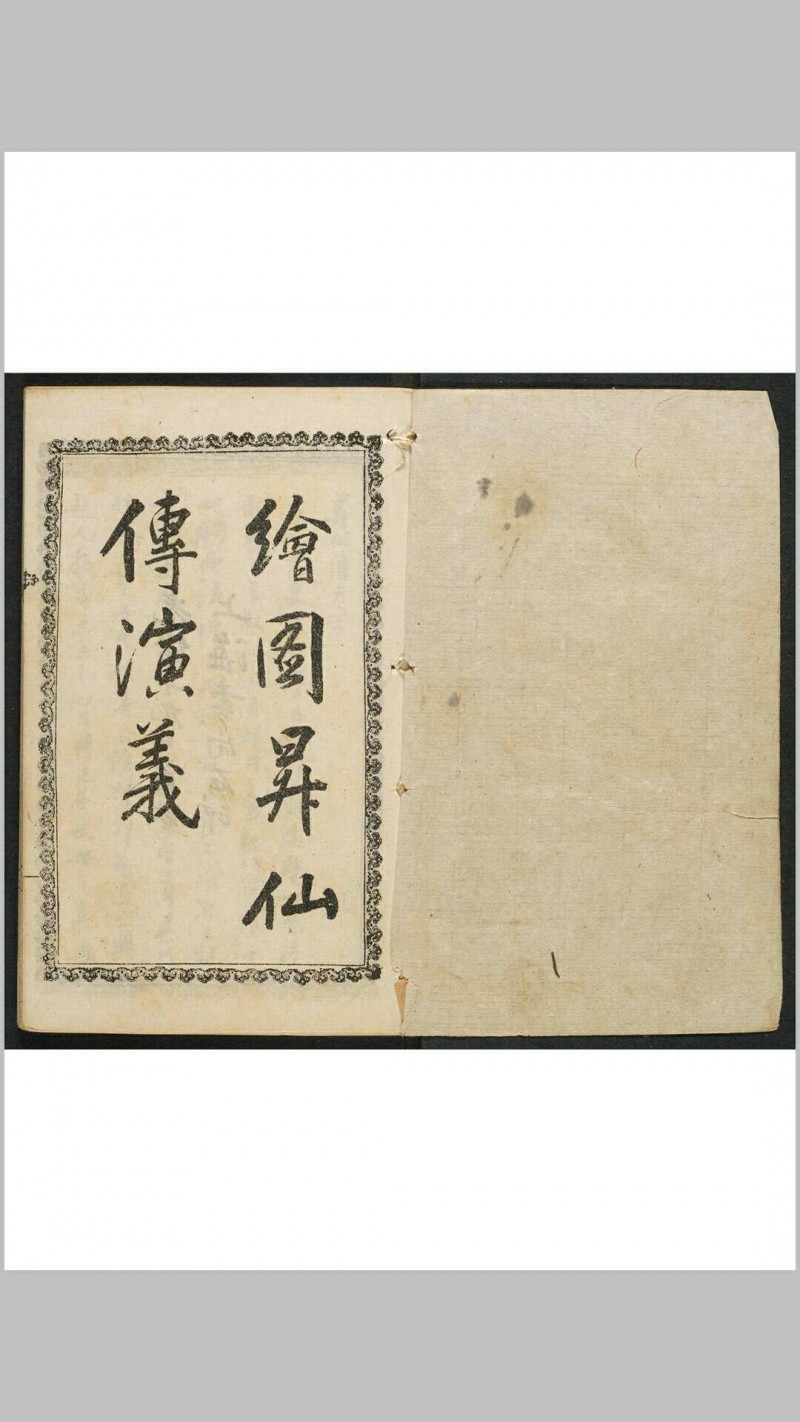 繪圖昇仙
傳演義